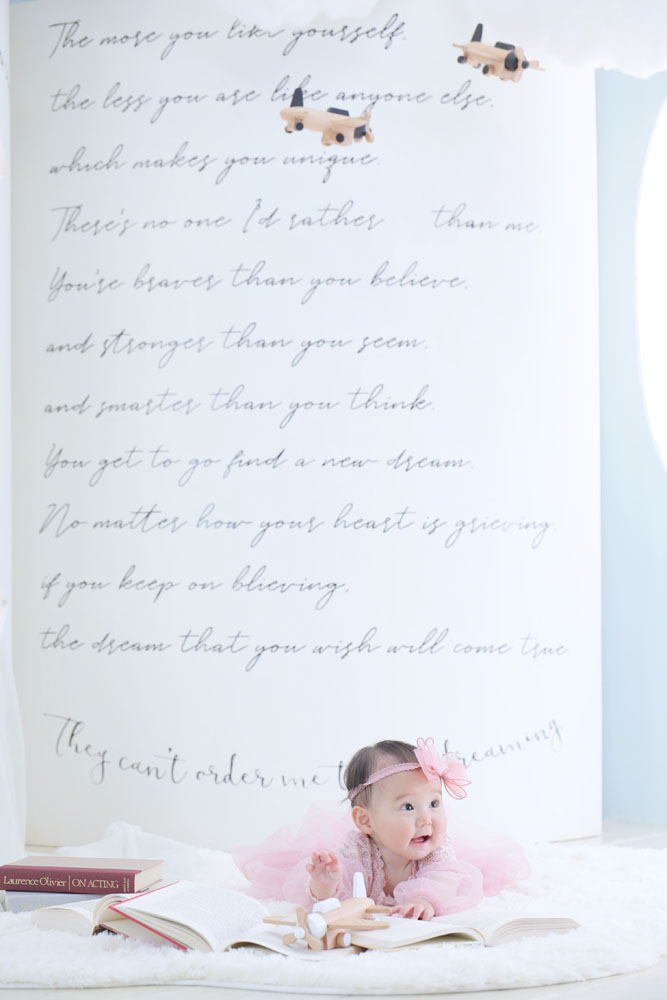 The more you like yourself,
the less you are like anyone else,
which makes you unique.
There's no one I'd rather than me.
You're braver than you believe,
and stronger than you seem,
and smarter than you think.
You get to go find a new dream.
No matter how your heart is grieving,
if you keep on blieving,
the dream that you wish will come true.
They can't order me dreaming
Laurence Olivier ON ACTING